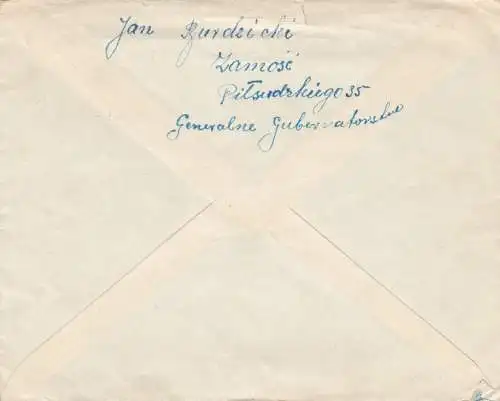 Jan Burdzicki
Zamość
Piłsudzkiego 35
Generalne Gubernatorstwo